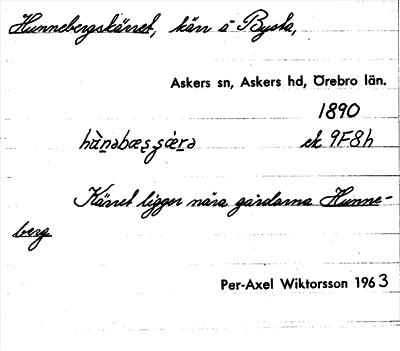 Hunnebergskärret, kärr å Bysta,
Askers sn, Askers hd, Örebro län.
1890
hùn̲əbæʂʂæ̀r̲ə ek 9F8h
Kärret ligger nära gårdarna Hunne-
berg
Per-Axel Wiktorsson 1963